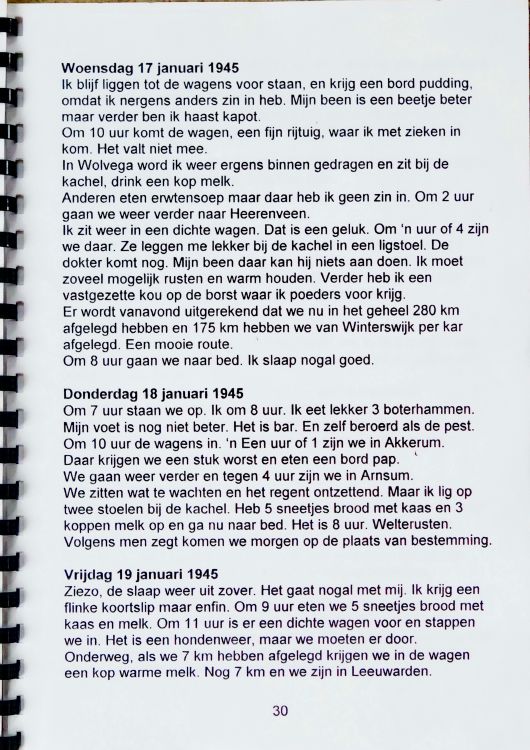 Woensdag 17 januari 1945
Ik blijf liggen tot de wagens voor staan, en krijg een bord pudding,
omdat ik nergens anders zin in heb. Mijn been is een beetje beter
maar verder ben ik haast kapot.
Om 10 uur komt de wagen, een fijn rijtuig, waar ik met zieken in
kom. Het valt niet mee.
In Wolvega word ik weer ergens binnen gedragen en zit bij de
kachel, drink een kop melk.
Anderen eten erwtensoep maar daar heb ik geen zin in. Om 2 uur
gaan we weer verder naar Heerenveen.
Ik zit weer in een dichte wagen. Dat is een geluk. Om ‘n uur of 4 zijn
we daar. Ze leggen me lekker bij de kachel in een ligstoel. De
dokter komt nog. Mijn been daar kan hij niets aan doen. Ik moet
zoveel mogelijk rusten en warm houden. Verder heb ik een
vastgezette kou op de borst waar ik poeders voor krijg.
Er wordt vanavond uitgerekend dat we nu in het geheel 280 km
afgelegd hebben en 175 km hebben we van Winterswijk per kar
afgelegd. Een mooie route.
Om 8 uur gaan we naar bed. Ik slaap nogal goed.
Donderdag 18 januari 1945
Om 7 uur staan we op. Ik om 8 uur. Ik eet lekker 3 boterhammen.
Mijn voet is nog niet beter. Het is bar. En zelf beroerd als de pest.
Om 10 uur de wagens in. ‘n Een uur of 1 zijn we in Akkerum.
Daar krijgen we een stuk worst en eten een bord pap.
We gaan weer verder en tegen 4 uur zijn we in Arnsum.
We zitten wat te wachten en het regent ontzettend. Maar ik lig op
twee stoelen bij de kachel. Heb 5 sneetjes brood met kaas en 3
koppen melk op en ga nu naar bed. Het is 8 uur. Welterusten.
Volgens men zegt komen we morgen op de plaats van bestemming.
Vrijdag 19 januari 1945
Ziezo, de slaap weer uit zover. Het gaat nogal met mij. Ik krijg een
flinke koortslip maar enfin. Om 9 uur eten we 5 sneetjes brood met
kaas en melk. Om 11 uur is er een dichte wagen voor en stappen
we in. Het is een hondenweer, maar we moeten er door.
Onderweg, als we 7 km hebben afgelegd krijgen we in de wagen
een kop warme melk. Nog 7 km en we zijn in Leeuwarden.
30